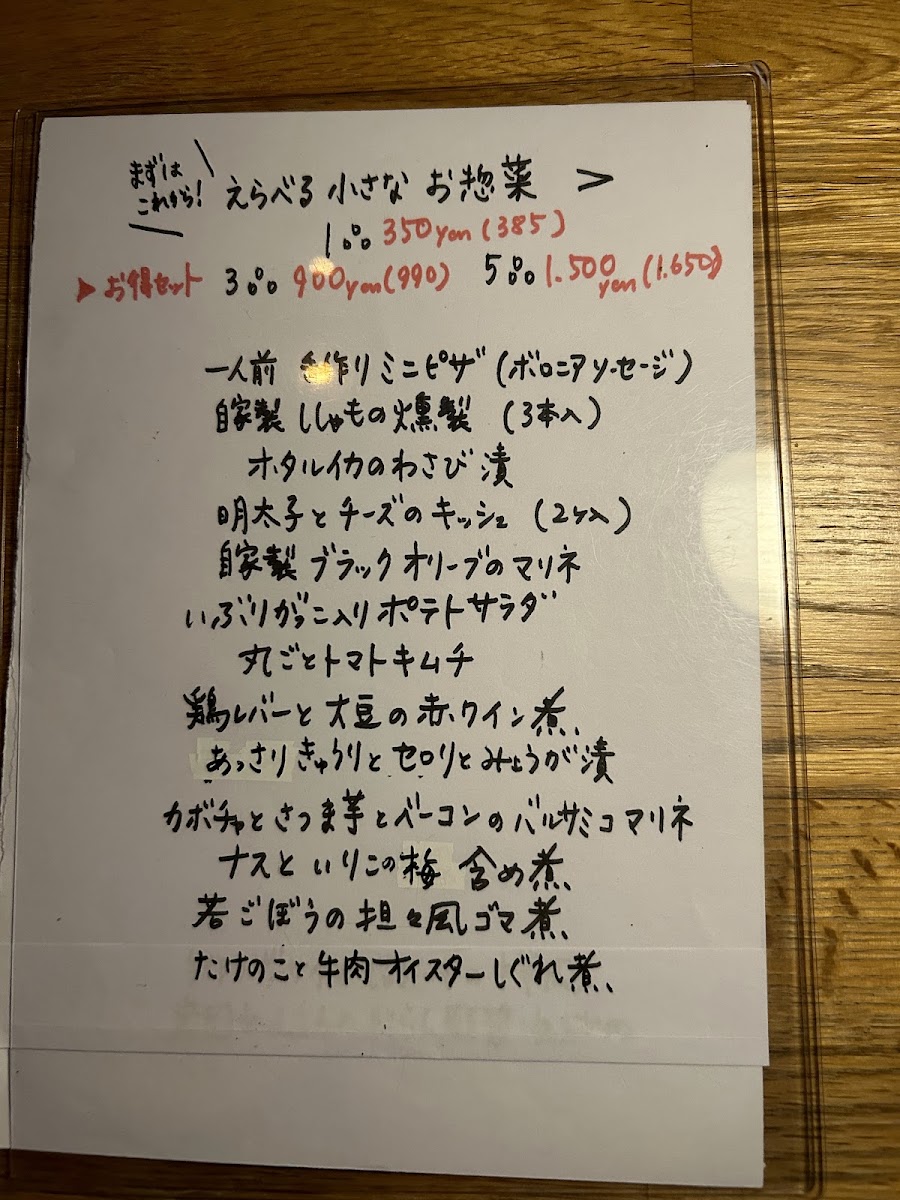 まずは
これから!
えらべる 小さな お惣菜 >
1品 350yen(385)
▶お得セット 3品 900yen(990) 5品 1.500yen(1.650)
一人前 手作り ミニピザ (ボロニアソーセージ)
自家製 ししゃもの燻製 (3本入)
ホタルイカのわさび漬
明太子とチーズのキッシュ (2ヶ入)
自家製 ブラックオリーブのマリネ
いぶりがっこ入りポテトサラダ
丸ごとトマトキムチ
鶏レバーと大豆の赤ワイン煮
あっさりきゅうりとセロリとみょうが漬
カボチャとさつま芋とベーコンのバルサミコマリネ
ナスといりこの梅 含め煮
若ごぼうの担々風ゴマ煮
たけのこと牛肉オイスターしぐれ煮